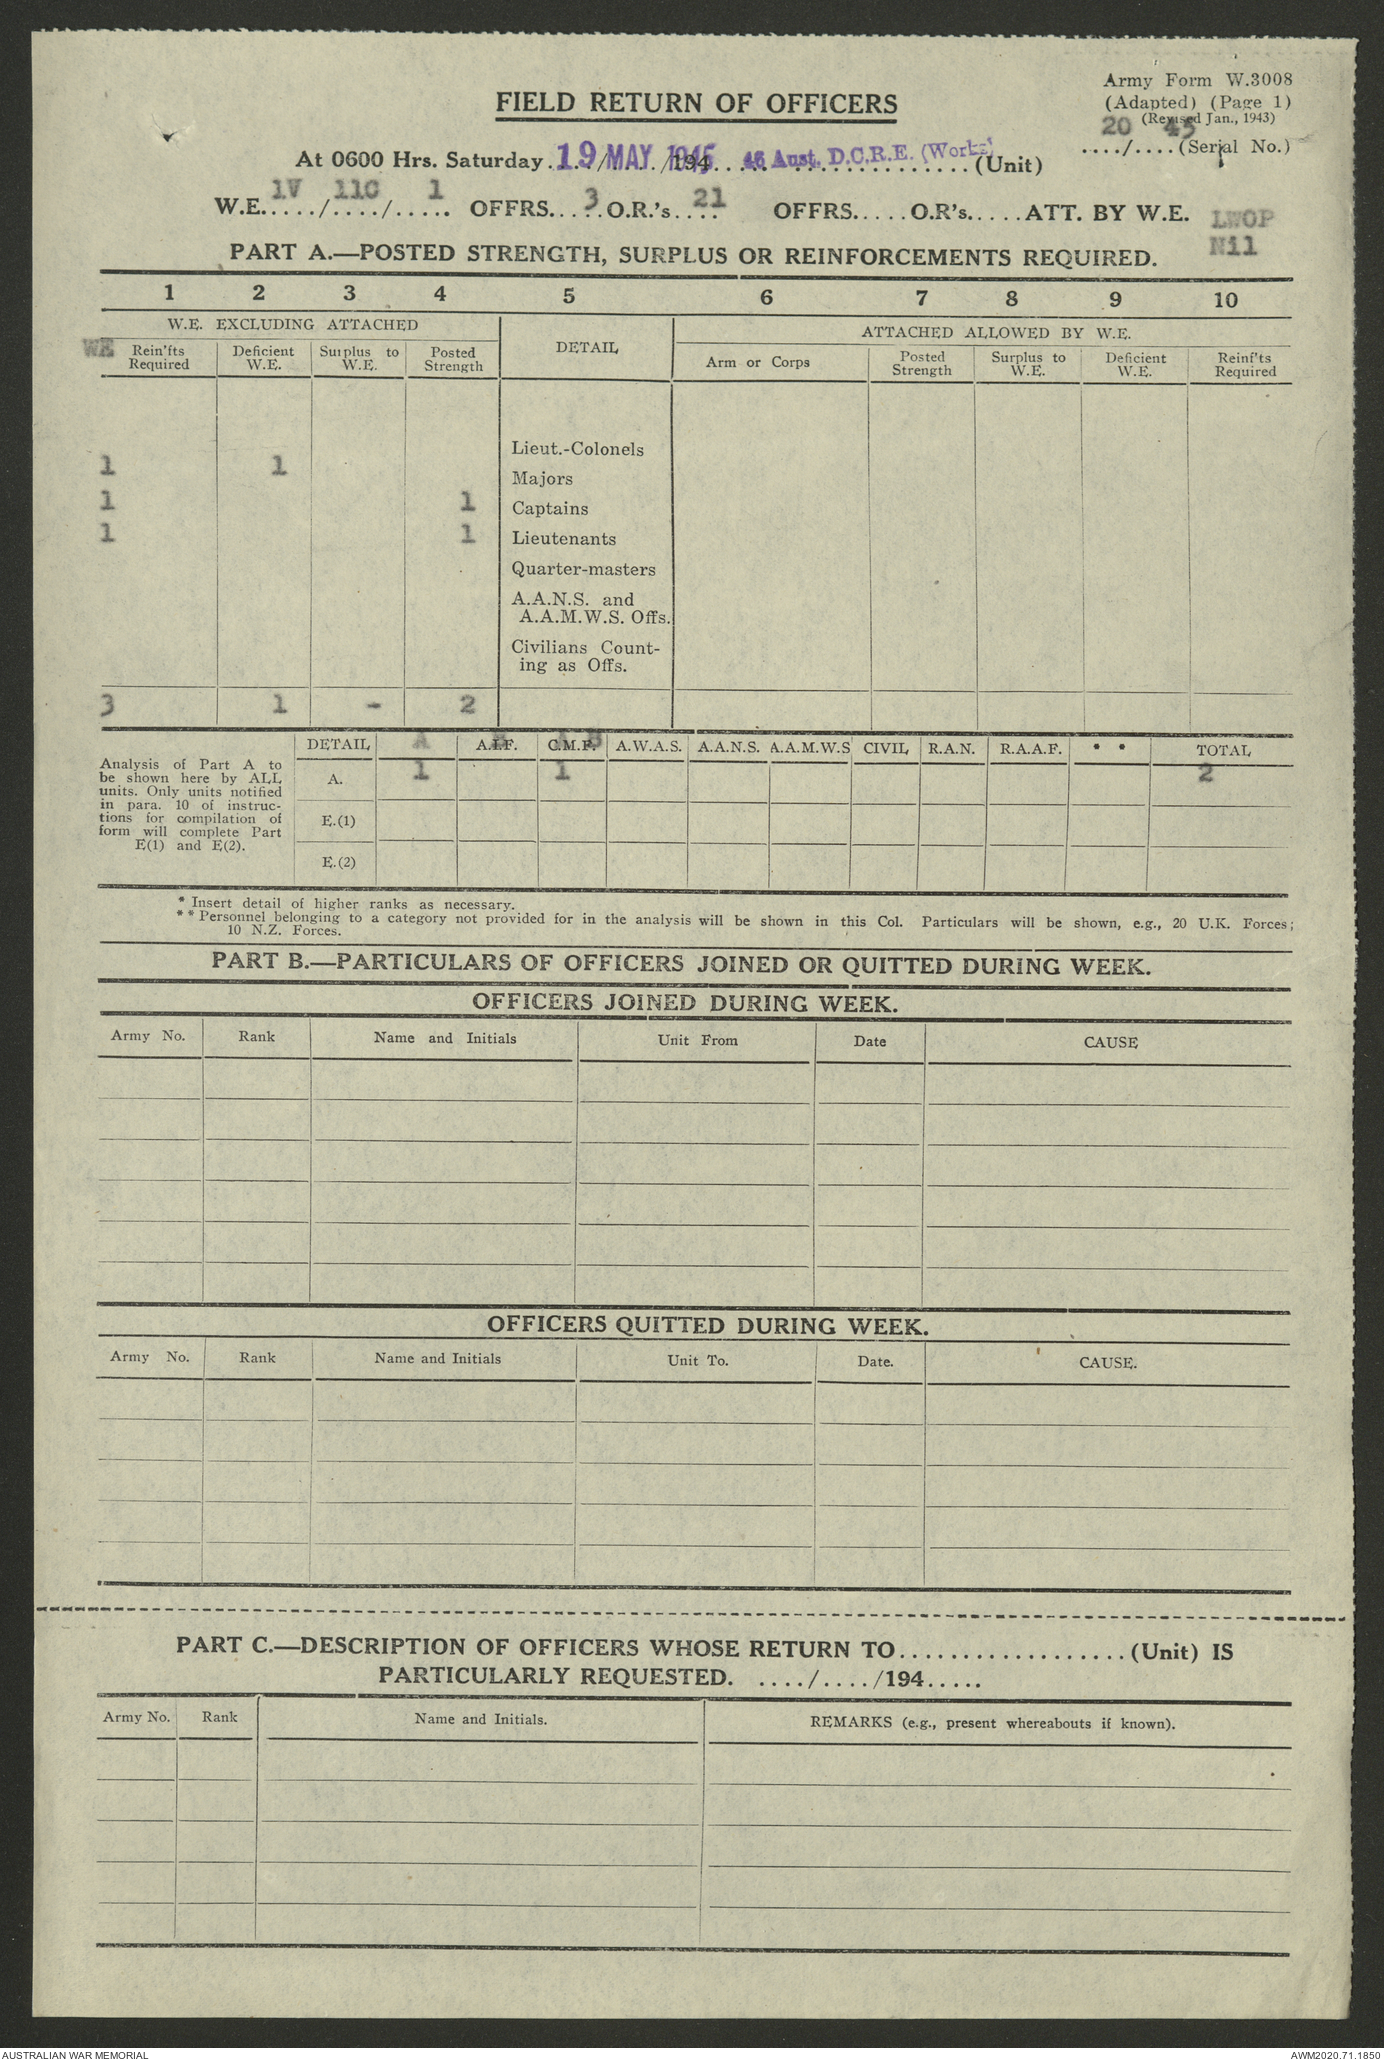 Army Form W.3008
FIELD RETURN OF OFFICERS
(Adapted) (Page 1)
(Revised Jan., 1943)
20 45
..../....(Serial No.)
At 0600 Hrs. Saturday. 19 MAY 1945 /194..... 46 Aust. D.C.R.E. (Works) (Unit)
1V 11C 1 3 21
W.E...../..../..... OFFRS.....O.R.'s.... OFFRS.....O.R's.....ATT. BY W.E. LWOP
Nil
PART A.—POSTED STRENGTH, SURPLUS OR REINFORCEMENTS REQUIRED.
1 2 3 4 5 6 7 8 9 10
W.E. EXCLUDING ATTACHED DETAIL ATTACHED ALLOWED BY W.E.
WE Rein'fts Required Deficient W.E. Surplus to W.E. Posted Strength Arm or Corps Posted Strength Surplus to W.E. Deficient W.E. Reinf'ts Required
Lieut.-Colonels
1 1 Majors
1 1 Captains
1 1 Lieutenants
Quarter-masters
A.A.N.S. and
A.A.M.W.S. Offs.
Civilians Count-
ing as Offs.
3 1 - 2
DETAIL A A.I.F. C.M.F. B A.W.A.S. A.A.N.S. A.A.M.W.S CIVIL R.A.N. R.A.A.F. * * TOTAL
Analysis of Part A to
be shown here by ALL
units. Only units notified
in para. 10 of instruc-
tions for compilation of
form will complete Part
E(1) and E(2).
A. 1 1 2
E.(1)
E.(2)
* Insert detail of higher ranks as necessary.
** Personnel belonging to a category not provided for in the analysis will be shown in this Col. Particulars will be shown, e.g., 20 U.K. Forces;
10 N.Z. Forces.
PART B.—PARTICULARS OF OFFICERS JOINED OR QUITTED DURING WEEK.
OFFICERS JOINED DURING WEEK.
Army No. Rank Name and Initials Unit From Date CAUSE
OFFICERS QUITTED DURING WEEK.
Army No. Rank Name and Initials Unit To. Date. CAUSE.
PART C.—DESCRIPTION OF OFFICERS WHOSE RETURN TO..................(Unit) IS
PARTICULARLY REQUESTED. ..../..../194.....
Army No. Rank Name and Initials. REMARKS (e.g., present whereabouts if known).
AUSTRALIAN WAR MEMORIAL AWM2020.71.1850